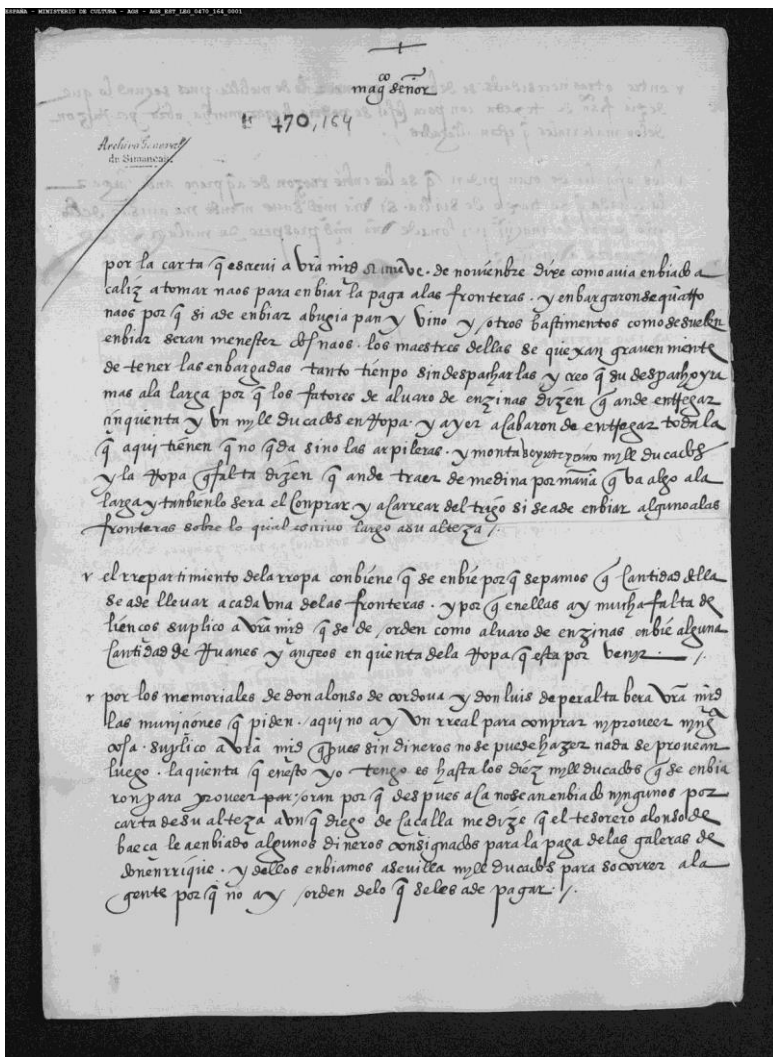 ESPAÑA - MINISTERIO DE CULTURA - AGS - AGS_EST_LEG_0470_164_0001
magco señor
470, 164
Archivo General
de Simancas
por la carta q̃ escrevi a vrã mrd nueve de noviembre dixe como avia enbiado a
caliz a tomar naos para enbiar la paga a las fronteras. y enbargaronse quatro
naos por q̃ si a de enbiar a bugia pan y vino y otros bastimentos como se suelen
enbiar seran menester dos naos. los maestres dellas se quexan gravemente
de tener las enbargadas tanto tienpo sin despacharlas y creo q̃ su despacho yra
mas a la larga por q̃ los fatores de alvaro de enzinas dizen q̃ an de entregar
cinquenta y un myll ducados en rropa. y ayer acabaron de entregar toda la
q̃ aqui tienen q̃ no q̃da sino las arpileras. y monta myll ducados
y la rropa q̃ falta dizen q̃ an de traer de medina por manã q̃ va algo a la
larga y tanbien lo sera el conprar y acarrear del trigo si se a de enbiar alguno a las
fronteras sobre lo qual escrivo largo a su alteza /.
v el rrepartimiento de la rropa conbiene q̃ se enbie por q̃ sepamos q̃ cantidad della
se a de llevar a cada una de las fronteras. y por q̃ en ellas ay mucha falta de
liencos suplico a vrã mrd q̃ se de orden como alvaro de enzinas enbie alguna
cantidad de Ruanes y angeos en quenta de la rropa q̃ esta por venir. /.
v por los memoriales de don alonso de cordova y don luis de peralta bera vrã mrd
las municiones q̃ piden. aqui no ay un rreal para conprar ny proveer nyngª
cosa. suplico a vrã mrd q̃ pues sin dineros no se puede hazer nada se provean
luego. la quenta q̃ en esto yo tengo es hasta los diez myll ducados q̃ se enbia
ron para proveer par oran por q̃ despues aca no se an enbiado nyngunos por
carta de su alteza aunq̃ diego de cacalla me dize q̃ el tesorero alonso de
baeca le a enbiado algunos dineros consignados para la paga de las galeras de
don enrrique. y dellos enbiamos a sevilla myll ducados para socorrer a la
gente por q̃ no ay orden de lo q̃ se les a de pagar. /.